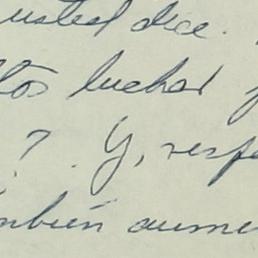 usted dice.
luchas
? . Y, respe
mbién aume